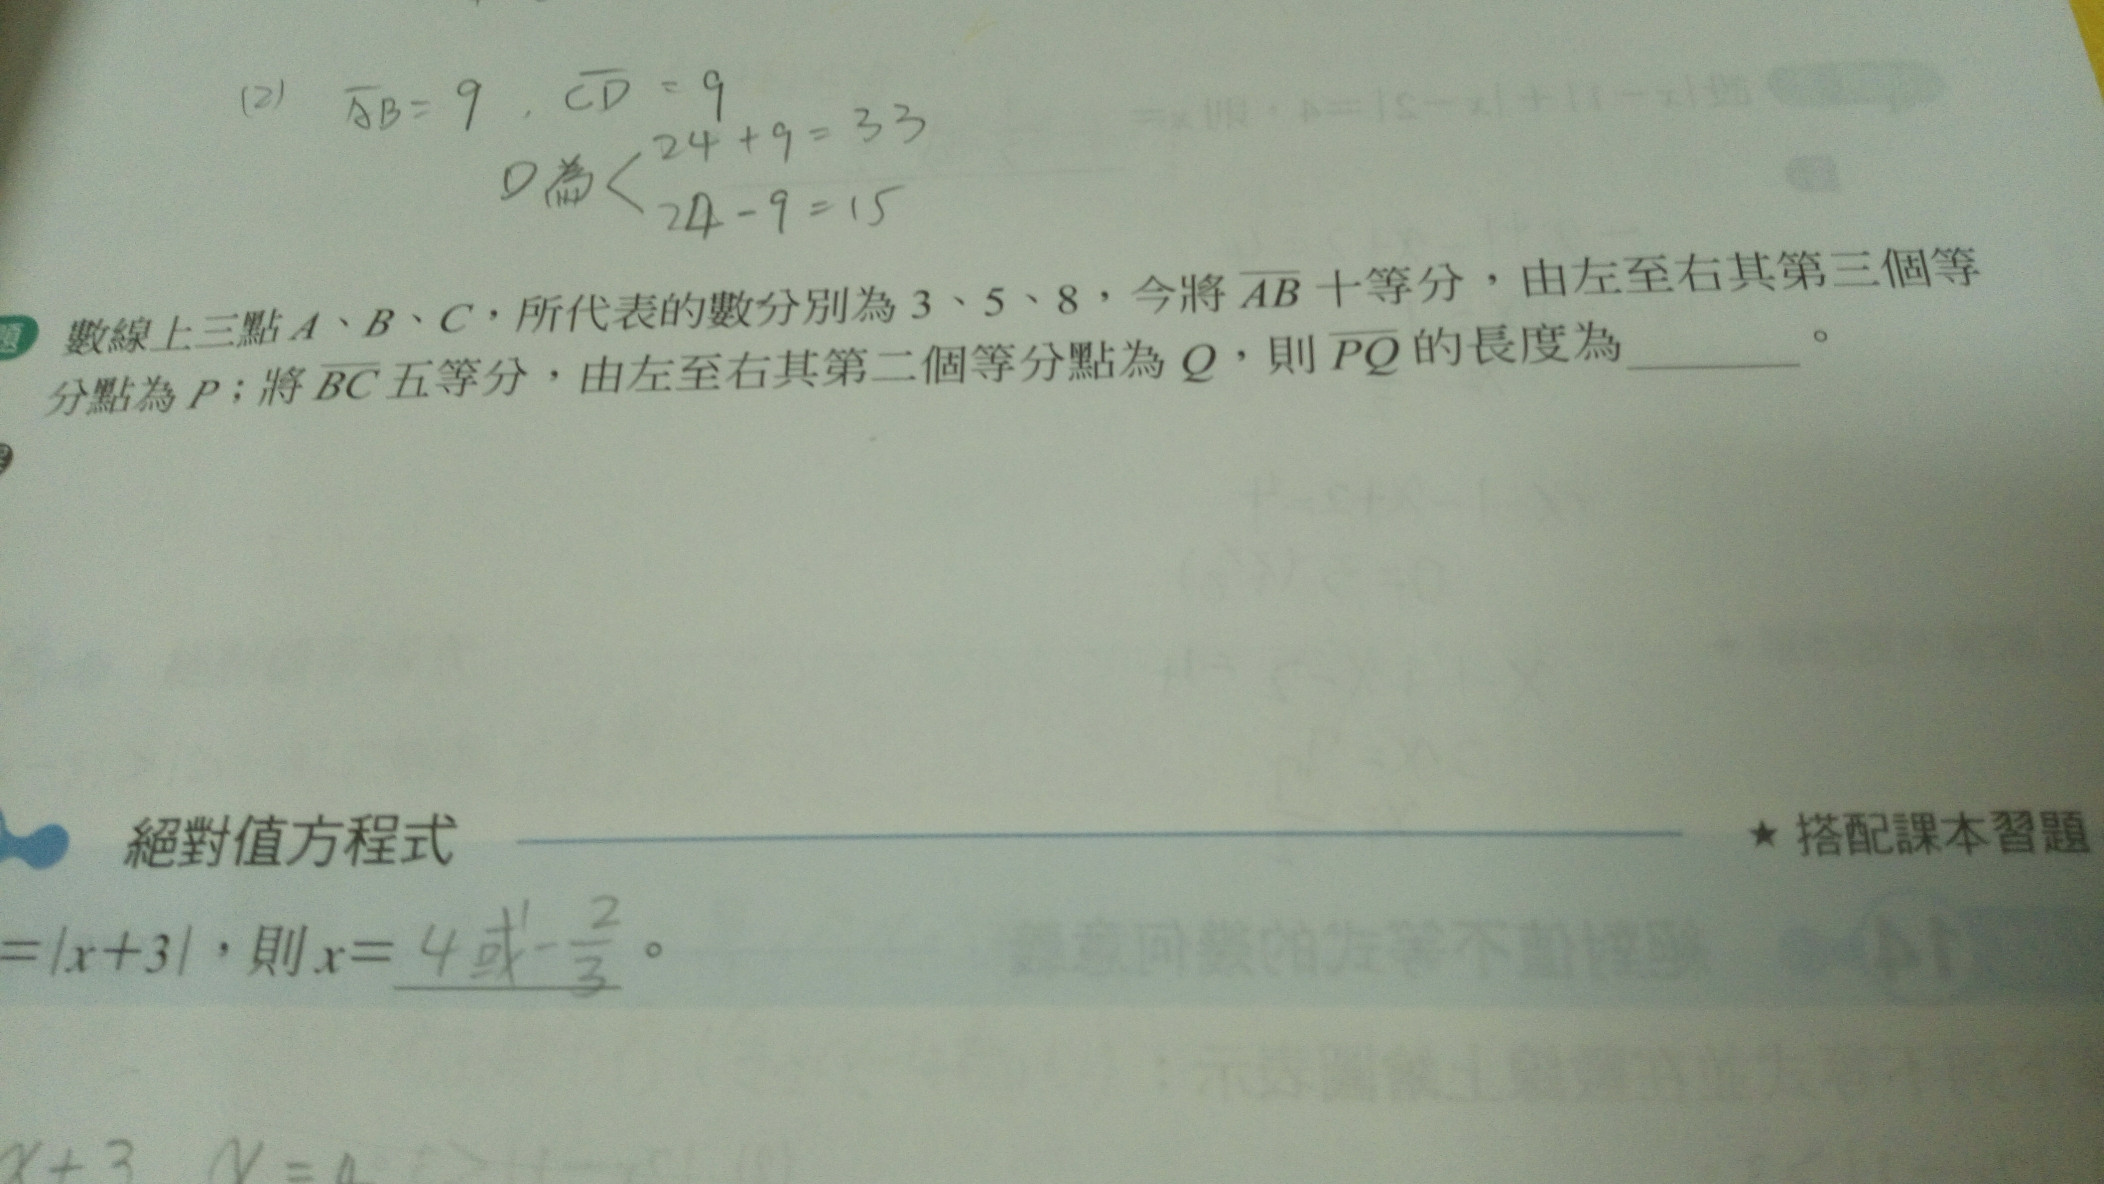 (2) AB = 9 , CD = 9
24 + 9 = 33
D為<
24 - 9 = 15
題 數線上三點 A、B、C，所代表的數分別為 3、5、8，今將 AB 十等分，由左至右其第三個等
分點為 P；將 BC 五等分，由左至右其第二個等分點為 Q，則 PQ 的長度為______。
絕對值方程式 ★ 搭配課本習題
=|x+3|，則 x= 4或-2/3 。
x+3 x=4